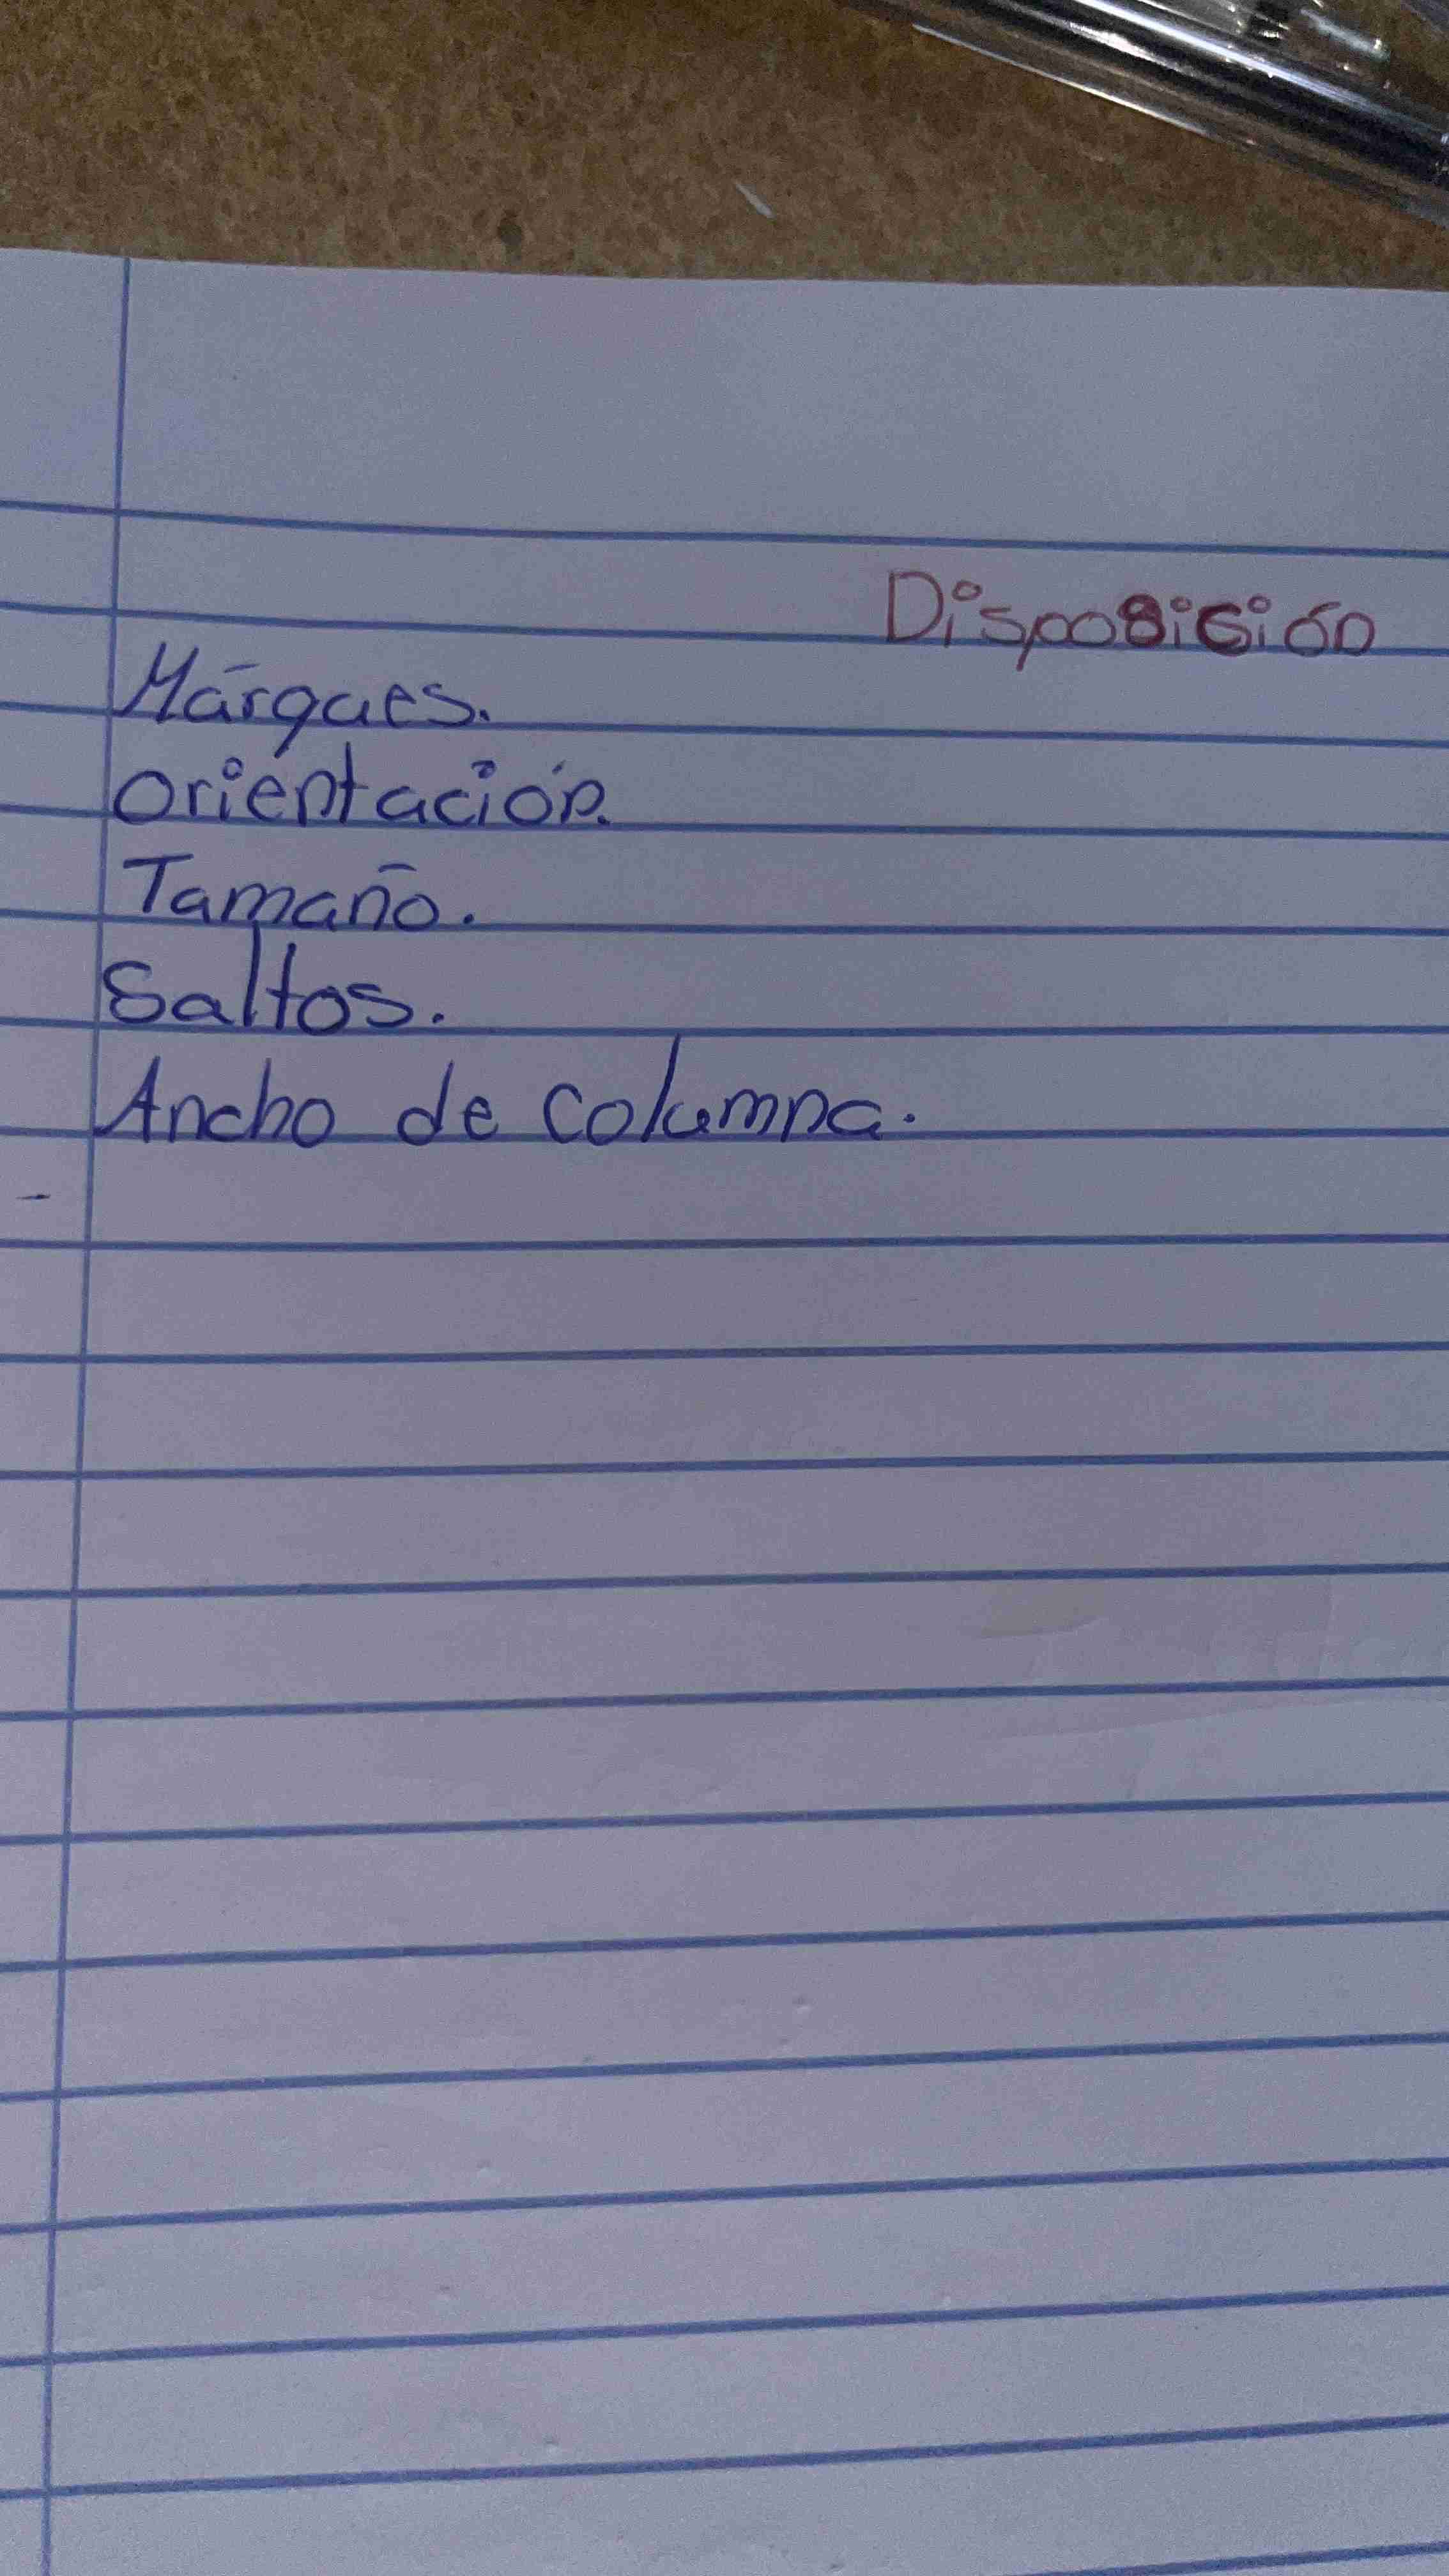 Disposición
Márques.
orientación.
Tamaño.
Saltos.
Ancho de columna.